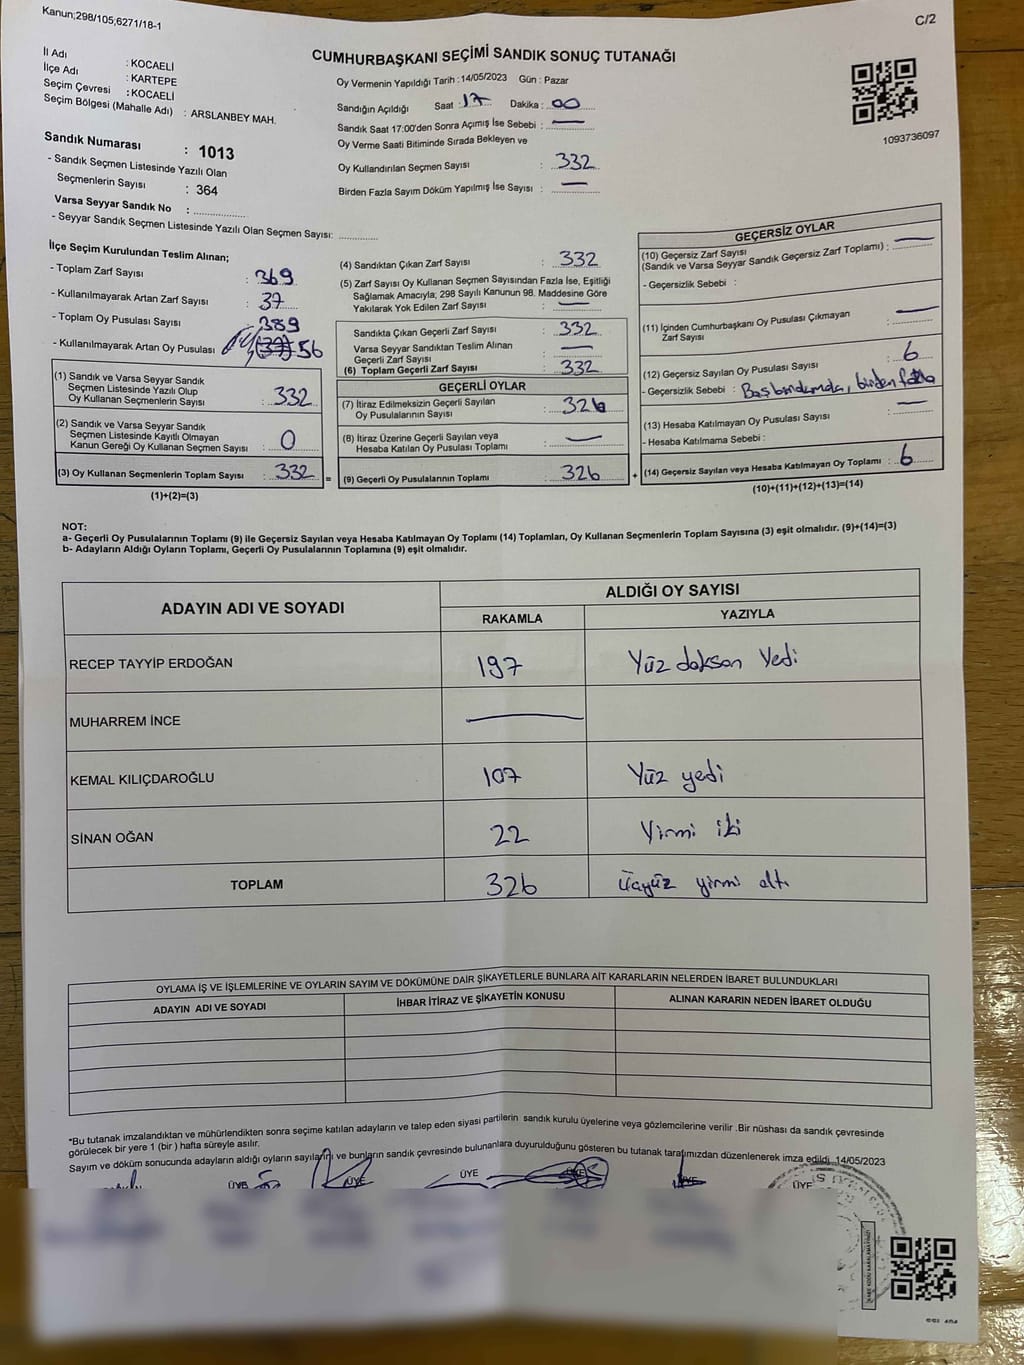 Kanun;298/105;6271/18-1
C/2
CUMHURBAŞKANI SEÇİMİ SANDIK SONUÇ TUTANAĞI
İl Adı : KOCAELİ
İlçe Adı : KARTEPE
Seçim Çevresi : KOCAELİ
Seçim Bölgesi (Mahalle Adı) : ARSLANBEY MAH.
Sandık Numarası : 1013
- Sandık Seçmen Listesinde Yazılı Olan
Seçmenlerin Sayısı : 364
Varsa Seyyar Sandık No :
- Seyyar Sandık Seçmen Listesinde Yazılı Olan Seçmen Sayısı:
Oy Vermenin Yapıldığı Tarih : 14/05/2023 Gün : Pazar
Sandığın Açıldığı Saat : 17 Dakika : 00
Sandık Saat 17:00'den Sonra Açımış İse Sebebi : —
Oy Verme Saati Bitiminde Sırada Bekleyen ve
Oy Kullandırılan Seçmen Sayısı : 332
Birden Fazla Sayım Döküm Yapılmış İse Sayısı : —
1093736097
İlçe Seçim Kurulundan Teslim Alınan;
- Toplam Zarf Sayısı : 369
- Kullanılmayarak Artan Zarf Sayısı : 37
- Toplam Oy Pusulası Sayısı : 389
- Kullanılmayarak Artan Oy Pusulası : (37) 56
(1) Sandık ve Varsa Seyyar Sandık
Seçmen Listesinde Yazılı Olup
Oy Kullanan Seçmenlerin Sayısı : 332
(2) Sandık ve Varsa Seyyar Sandık
Seçmen Listesinde Kayıtlı Olmayan
Kanun Gereği Oy Kullanan Seçmen Sayısı : 0
(3) Oy Kullanan Seçmenlerin Toplam Sayısı : 332 =
(1)+(2)=(3)
(4) Sandıktan Çıkan Zarf Sayısı : 332
(5) Zarf Sayısı Oy Kullanan Seçmen Sayısından Fazla İse, Eşitliği
Sağlamak Amacıyla; 298 Sayılı Kanunun 98. Maddesine Göre
Yakılarak Yok Edilen Zarf Sayısı : —
Sandıkta Çıkan Geçerli Zarf Sayısı : 332
Varsa Seyyar Sandıktan Teslim Alınan
Geçerli Zarf Sayısı : —
(6) Toplam Geçerli Zarf Sayısı : 332
GEÇERLİ OYLAR
(7) İtiraz Edilmeksizin Geçerli Sayılan
Oy Pusulalarının Sayısı : 326
(8) İtiraz Üzerine Geçerli Sayılan veya
Hesaba Katılan Oy Pusulası Toplamı : —
(9) Geçerli Oy Pusulalarının Toplamı : 326 +
GEÇERSİZ OYLAR
(10) Geçersiz Zarf Sayısı
(Sandık ve Varsa Seyyar Sandık Geçersiz Zarf Toplamı) : —
- Geçersizlik Sebebi :
(11) İçinden Cumhurbaşkanı Oy Pusulası Çıkmayan
Zarf Sayısı : —
(12) Geçersiz Sayılan Oy Pusulası Sayısı : 6
- Geçersizlik Sebebi : birden fazla
(13) Hesaba Katılmayan Oy Pusulası Sayısı : —
- Hesaba Katılmama Sebebi :
(14) Geçersiz Sayılan veya Hesaba Katılmayan Oy Toplamı : 6
(10)+(11)+(12)+(13)=(14)
NOT:
a- Geçerli Oy Pusulalarının Toplamı (9) ile Geçersiz Sayılan veya Hesaba Katılmayan Oy Toplamı (14) Toplamları, Oy Kullanan Seçmenlerin Toplam Sayısına (3) eşit olmalıdır. (9)+(14)=(3)
b- Adayların Aldığı Oyların Toplamı, Geçerli Oy Pusulalarının Toplamına (9) eşit olmalıdır.
ADAYIN ADI VE SOYADI
ALDIĞI OY SAYISI
RAKAMLA YAZIYLA
RECEP TAYYİP ERDOĞAN 197 Yüz doksan yedi
MUHARREM İNCE —
KEMAL KILIÇDAROĞLU 107 Yüz yedi
SİNAN OĞAN 22 Yirmi iki
TOPLAM 326 üçyüz yirmi altı
OYLAMA İŞ VE İŞLEMLERİNE VE OYLARIN SAYIM VE DÖKÜMÜNE DAİR ŞİKAYETLERLE BUNLARA AİT KARARLARIN NELERDEN İBARET BULUNDUKLARI
ADAYIN ADI VE SOYADI İHBAR İTİRAZ VE ŞİKAYETİN KONUSU ALINAN KARARIN NEDEN İBARET OLDUĞU
*Bu tutanak imzalandıktan ve mühürlendikten sonra seçime katılan adayların ve talep eden siyasi partilerin sandık kurulu üyelerine veya gözlemcilerine verilir .Bir nüshası da sandık çevresinde
görülecek bir yere 1 (bir ) hafta süreyle asılır.
Sayım ve döküm sonucunda adayların aldığı oyların sayılarını ve bunların sandık çevresinde bulunanlara duyurulduğunu gösteren bu tutanak tarafımızdan düzenlenerek imza edildi. 14/05/2023
ÜYE ÜYE ÜYE ÜYE ÜYE ÜYE